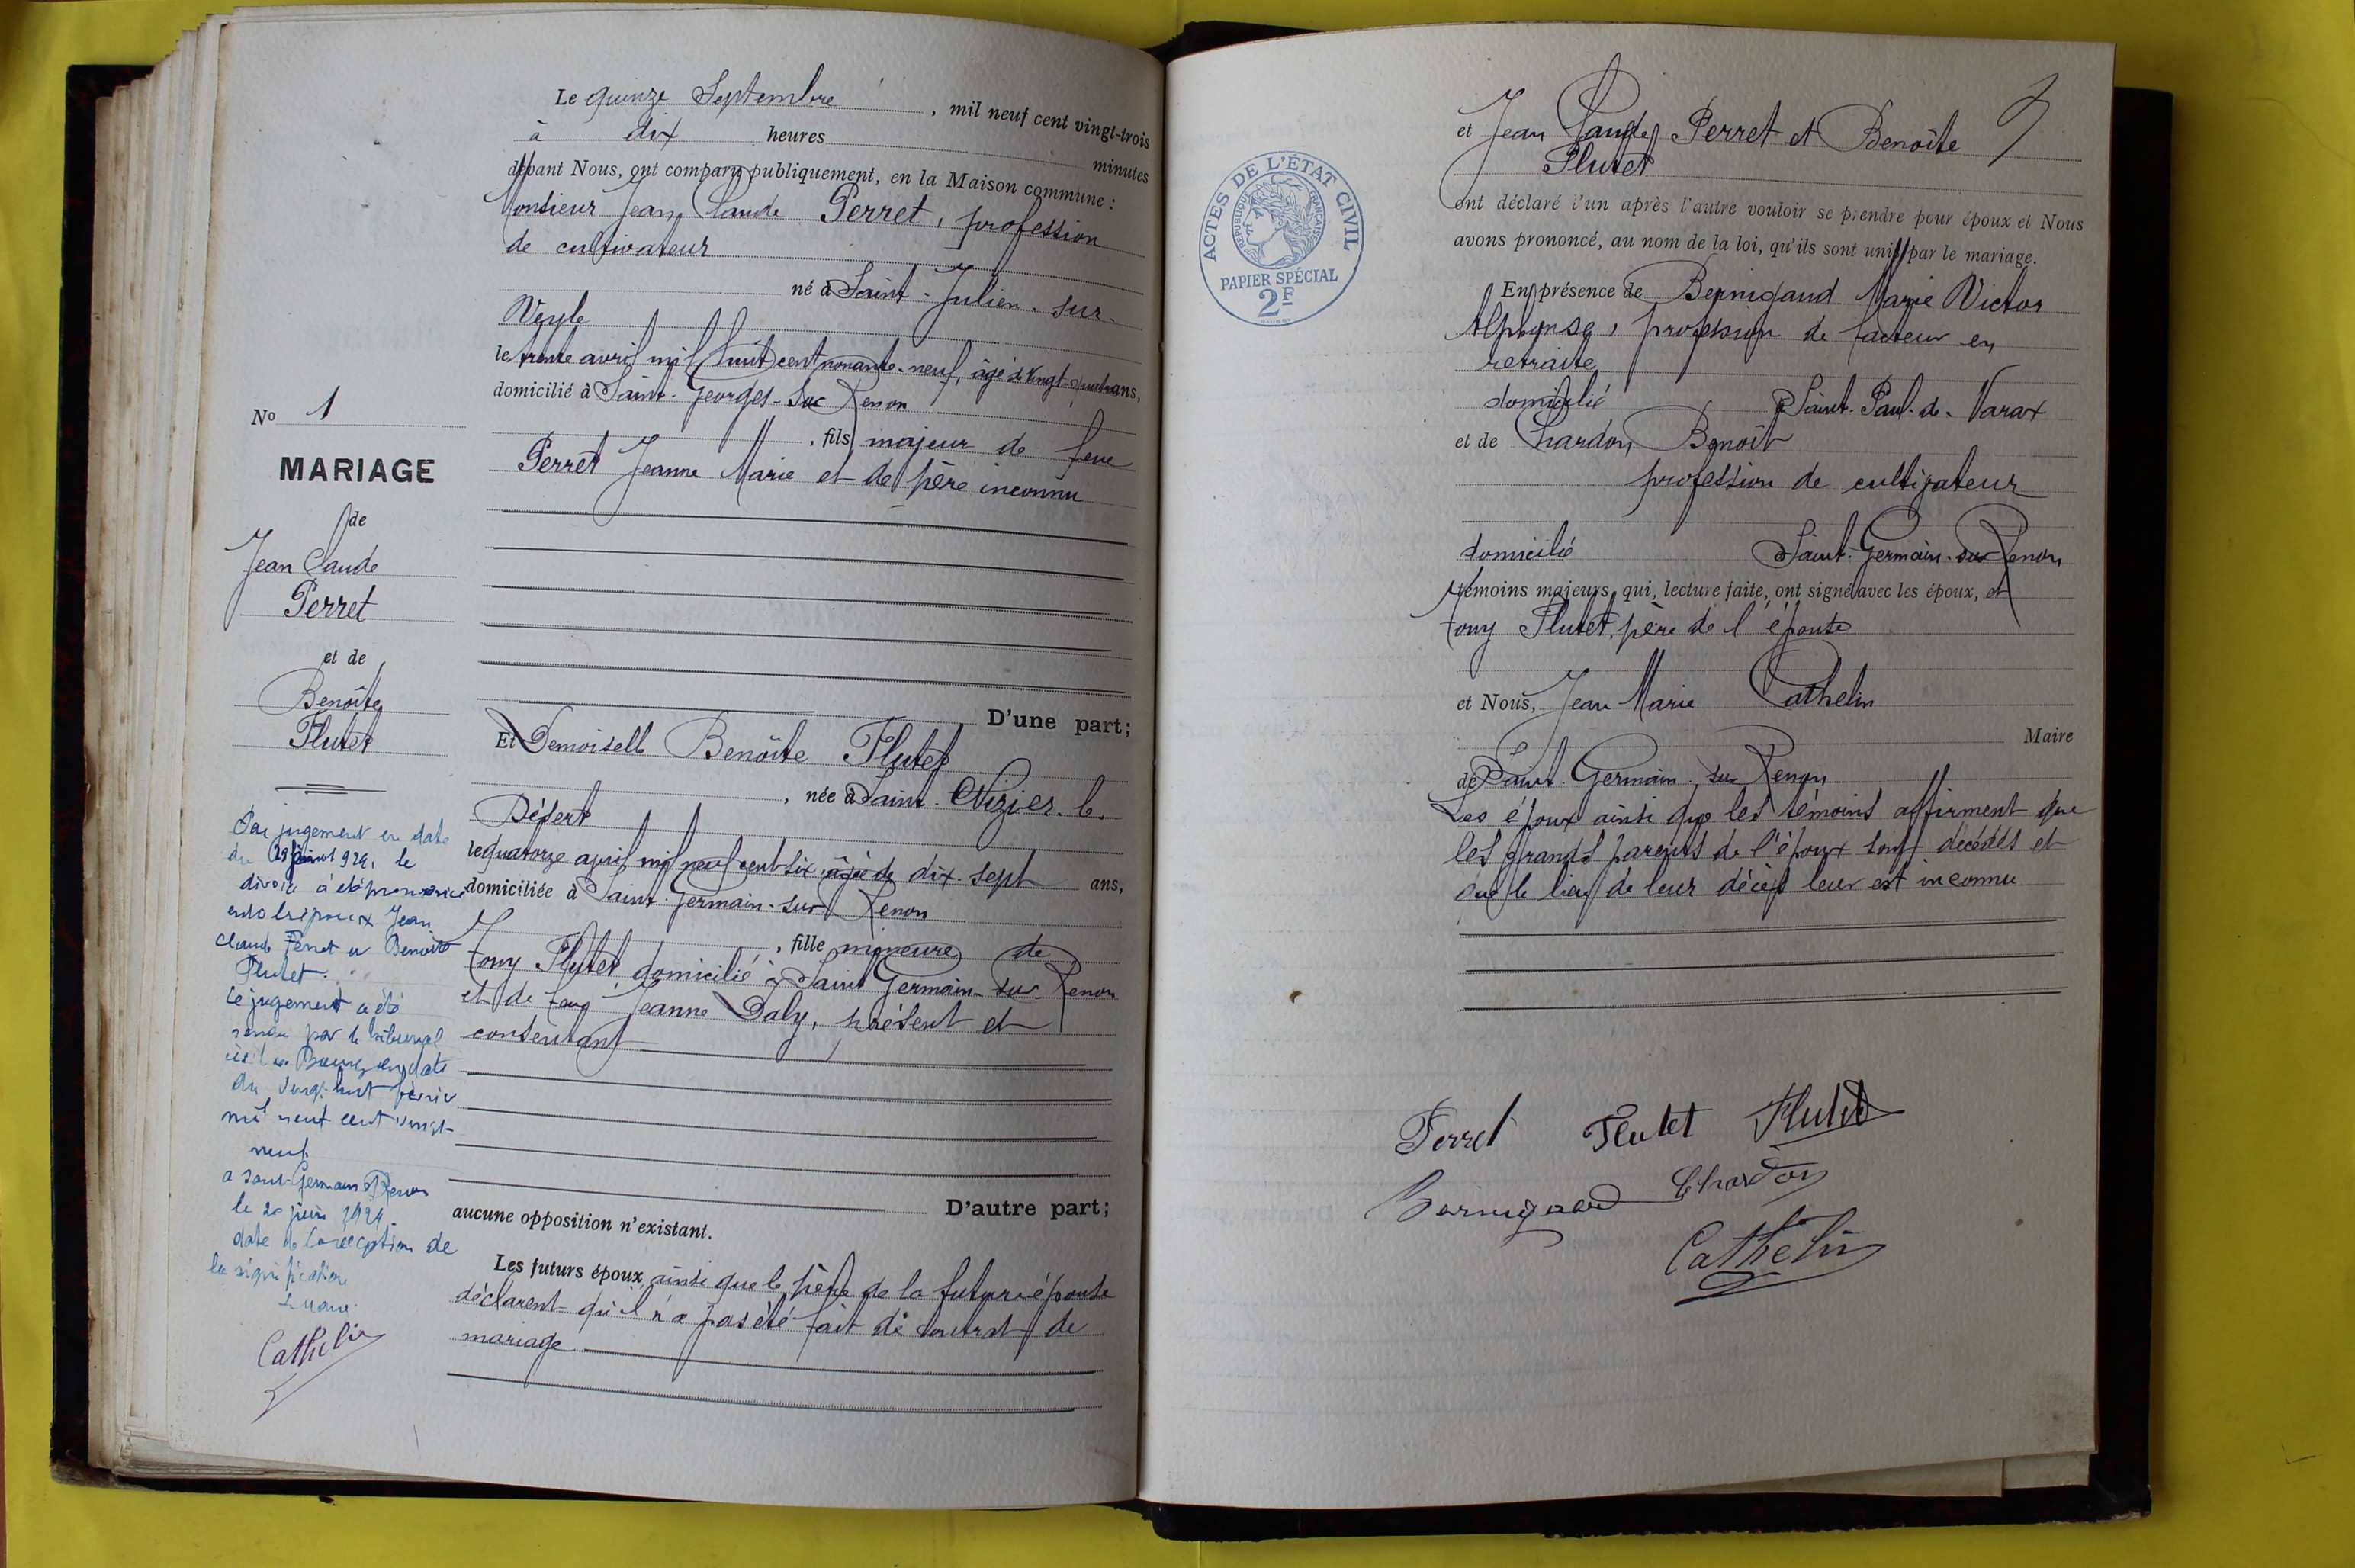 Le quinze Septembre, mil neuf cent vingt-trois
à dix heures minutes
devant Nous, ont comparu publiquement, en la Maison commune :
Monsieur Jean Claude Perret, profession
de cultivateur
né à Saint-Julien-sur-
Veyle
le trente avril mil huit cent nonante-neuf, âgé de vingt-quatre ans,
domicilié à Saint-Georges-sur Renon
, fils majeur de feue
Perret Jeanne Marie et de père inconnu
No 1
MARIAGE
de
Jean Claude
Perret
et de
Benoîte
Flutet
D'une part;
Et Demoiselle Benoîte Flutet
, née à Saint-Nizier-le-
Désert
le quatorze avril mil neuf cent six âgée de dix-sept ans,
domiciliée à Saint-Germain-sur Renon
, fille mineure de
Tony Flutet, domicilié à Saint Germain-sur-Renon
et de feue Jeanne Daly, présent et
consentant
D'autre part;
aucune opposition n'existant.
Les futurs époux ainsi que le père de la future épouse
déclarent qu'il n'a pas été fait de contrat de
mariage
Par jugement en date
du 1929, le
divorce a été prononcé
entre les époux Jean
Claude Perret et Benoîte
Flutet.
Ce jugement a été
rendu par le tribunal
civil de Bourg en date
du vingt-huit février
mil neuf cent vingt-
neuf.
a Saint-Germain s/Renon
le 20 juin 1929
date de la réception de
la signification
Le Maire
Cathelin
et Jean Claude Perret et Benoîte
Flutet
ont déclaré l'un après l'autre vouloir se prendre pour époux et Nous
avons prononcé, au nom de la loi, qu'ils sont unis par le mariage.
En présence de Bernigaud Marie Victor
Alphonse, profession de facteur en
retraite
domicilié à Saint-Paul-de-Varax
et de Chardon Benoît
profession de cultivateur
domicilié Saint-Germain-sur-Renon
témoins majeurs, qui, lecture faite, ont signé avec les époux, et
Tony Flutet, père de l'épouse
et Nous, Jean Marie Cathelin
Maire
de Saint-Germain-sur Renon
Les époux ainsi que les témoins affirment que
les grands parents de l'époux sont décédés et
que le lieu de leur décès leur est inconnu
Perret Flutet Flutet
Bernigaud Chardon
Cathelin
ACTES DE L'ÉTAT CIVIL
RÉPUBLIQUE FRANÇAISE
PAPIER SPÉCIAL
2F